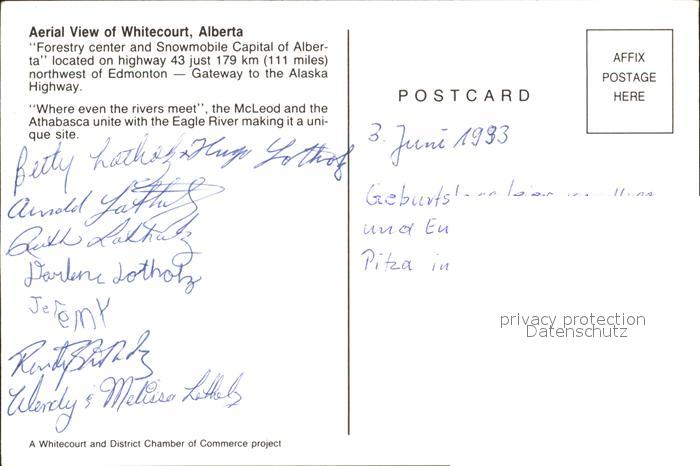 Aerial View of Whitecourt, Alberta
"Forestry center and Snowmobile Capital of Alber-
ta" located on highway 43 just 179 km (111 miles)
northwest of Edmonton — Gateway to the Alaska
Highway.
"Where even the rivers meet", the McLeod and the
Athabasca unite with the Eagle River making it a uni-
que site.
Betty Lotholz + Hugo Lotholz
Arnold Lotholz
Ruth Lotholz
Darlene Lotholz
Jeremy
Lotholz
Wendy & Melissa Lotholz
A Whitecourt and District Chamber of Commerce project
POSTCARD
AFFIX
POSTAGE
HERE
3. Juni 1993
und
Pitza in
privacy protection
Datenschutz